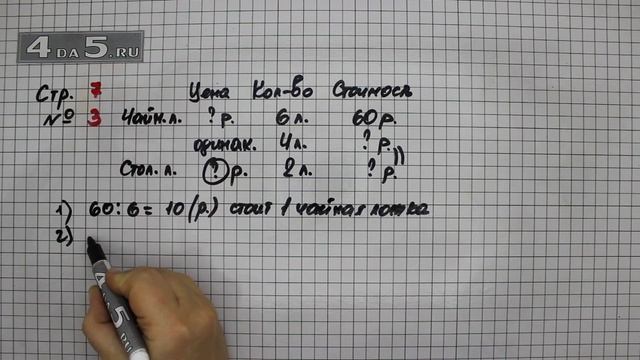 4 DA 5.RU
Стр. 7 Цена Кол-во Стоимость
№ 3 Чайн.л. ? р. 6 л. 60 р.
одинак. 4 л. ? р.
Стол. л. ? р. 2 л. ? р.
1) 60 : 6 = 10 (р.) стоит 1 чайная ложка
2)
4 DA 5.RU